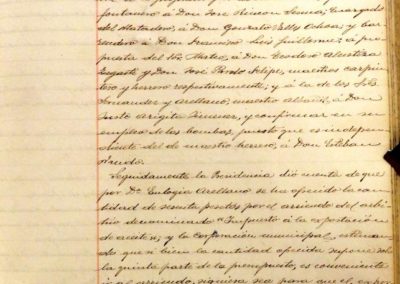 fontanero á Don José Rincon Senosi, Encargado
del Matadero, á Don Gonzalo Villy Ochoa, y bar-
rendero á Don Francisco Luis Guillermo; á pro
puesta del Sr. Mateo, á Don Teodoro Alcántara
Zugasti y Don José Pardo Felipe, maestros carpin
tero y herrero respectivamente; y á la de los Sres.
Fernandez y Arellano, maestro albañil, á Don
Justo Arigita Jimenez, y confirmar en su
empleo de las bombas, puesto que es indepen
diente del de maestro herrero, á Don Esteban
Seguidamente la Presidencia dió cuenta de que
por Dª. Eulogia Arellano se ha ofrecido la can
tidad de pesetas por el arriendo del arbi
trio denominado "Impuesto á la exportacion
de aceite"; y la Corporación municipal, estiman
do que si bien la cantidad ofrecida supone solo
la quinta parte de la presupuesto, es conveniente
ir al arriendo, siquiera sea para que el